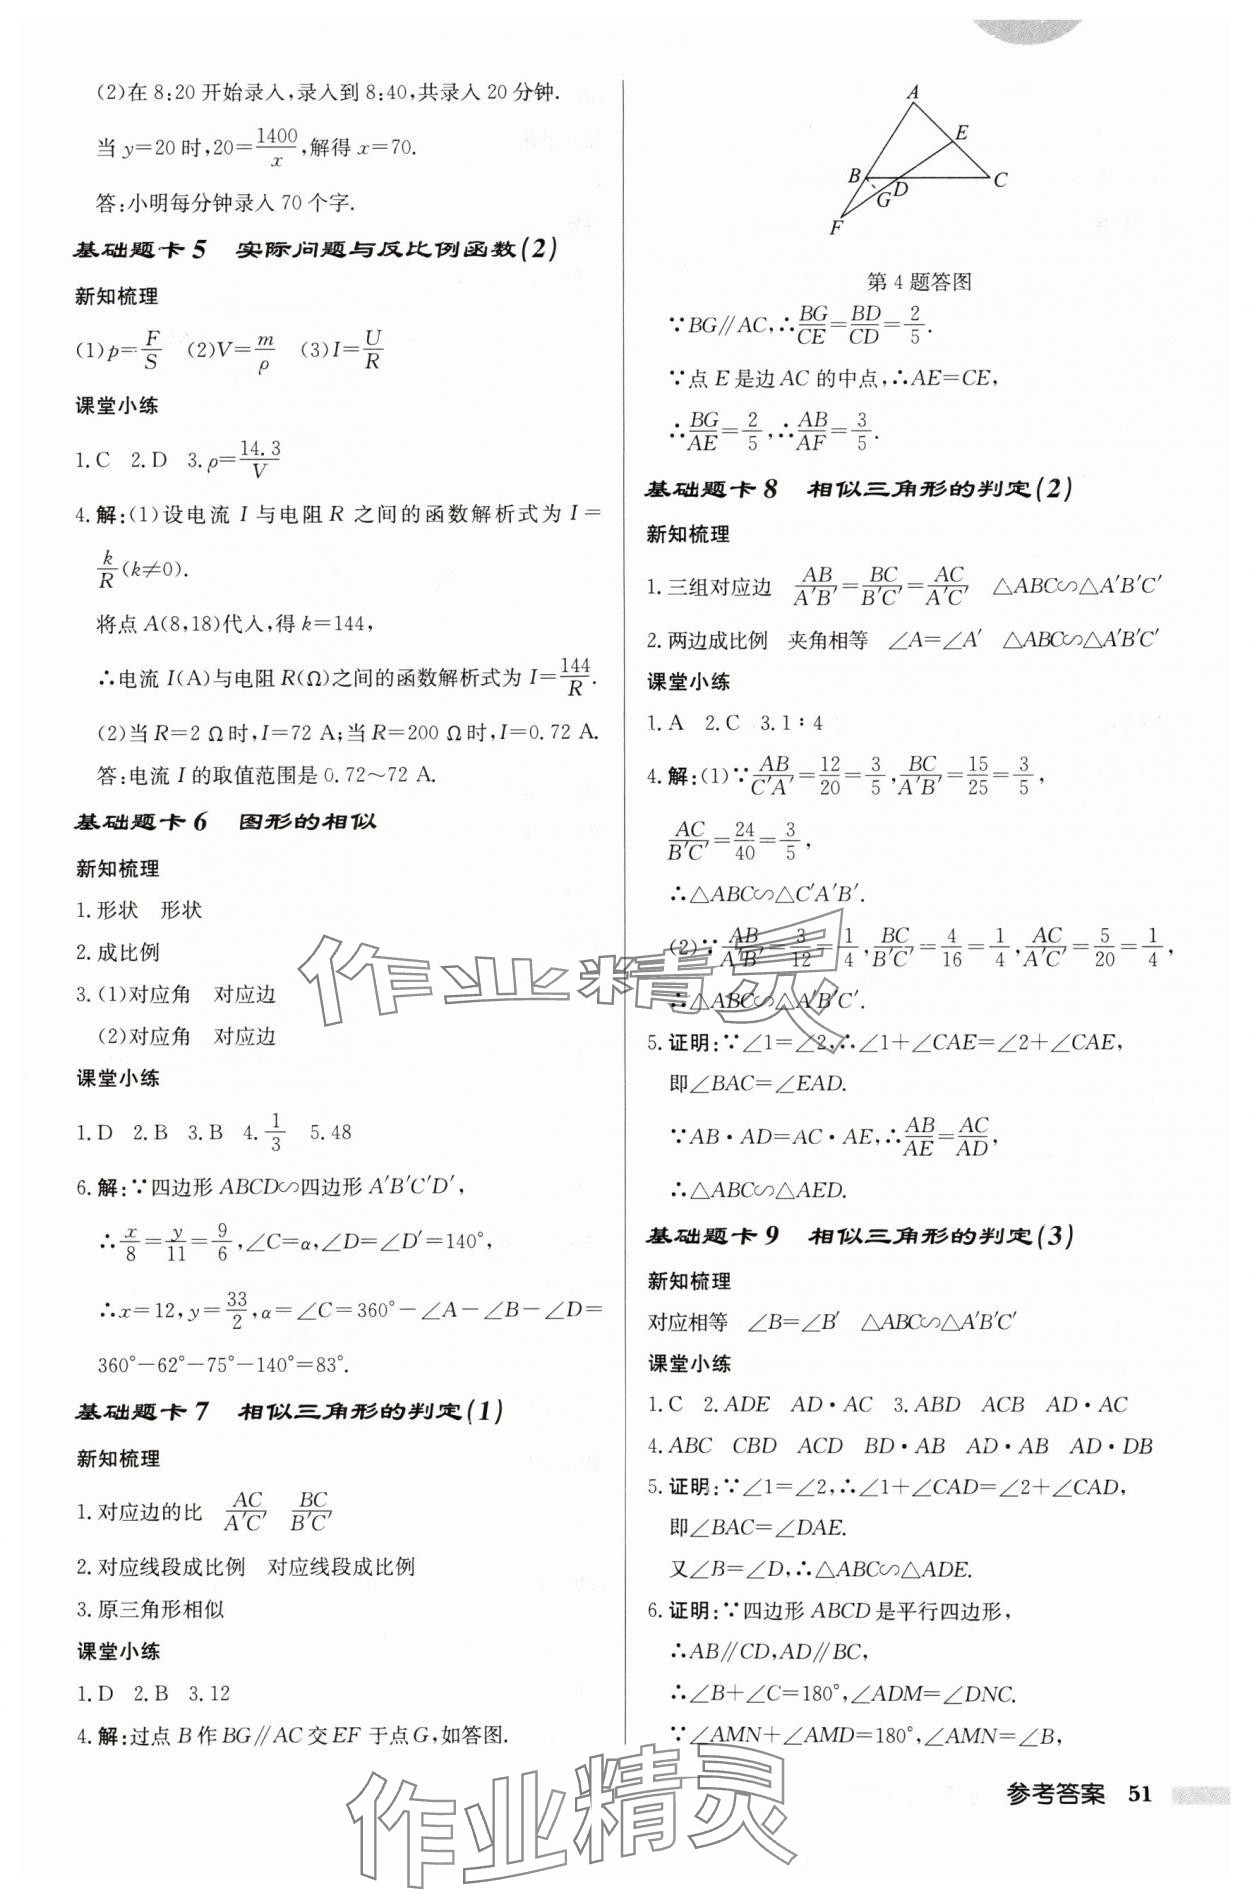 (2)在 8:20 开始录入,录入到 8:40,共录入 20 分钟.
当 y=20 时,20=1400/x,解得 x=70.
答:小明每分钟录入 70 个字.
基础题卡 5 实际问题与反比例函数(2)
新知梳理
(1)p=F/S (2)V=m/ρ (3)I=U/R
课堂小练
1.C 2.D 3.ρ=14.3/V
4.解:(1)设电流 I 与电阻 R 之间的函数解析式为 I=
k/R(k≠0).
将点 A(8,18)代入,得 k=144,
∴电流 I(A)与电阻 R(Ω)之间的函数解析式为 I=144/R.
(2)当 R=2 Ω时,I=72 A;当 R=200 Ω时,I=0.72 A.
答:电流 I 的取值范围是 0.72~72 A.
基础题卡 6 图形的相似
新知梳理
1.形状 形状
2.成比例
3.(1)对应角 对应边
(2)对应角 对应边
课堂小练
1.D 2.B 3.B 4.1/3 5.48
6.解:∵四边形 ABCD∽四边形 A′B′C′D′,
∴x/8=y/11=9/6,∠C=α,∠D=∠D′=140°,
∴x=12,y=33/2,α=∠C=360°-∠A-∠B-∠D=
360°-62°-75°-140°=83°.
基础题卡 7 相似三角形的判定(1)
新知梳理
1.对应边的比 AC/A′C′ BC/B′C′
2.对应线段成比例 对应线段成比例
3.原三角形相似
课堂小练
1.D 2.B 3.12
4.解:过点 B 作 BG∥AC 交 EF 于点 G,如答图.
A
E
B
D
C
G
F
第 4 题答图
∵BG∥AC,∴BG/CE=BD/CD=2/5.
∵点 E 是边 AC 的中点,∴AE=CE,
∴BG/AE=2/5,∴AB/AF=3/5.
基础题卡 8 相似三角形的判定(2)
新知梳理
1.三组对应边 AB/A′B′=BC/B′C′=AC/A′C′ △ABC∽△A′B′C′
2.两边成比例 夹角相等 ∠A=∠A′ △ABC∽△A′B′C′
课堂小练
1.A 2.C 3.1∶4
4.解:(1)∵AB/C′A′=12/20=3/5,BC/A′B′=15/25=3/5,
AC/B′C′=24/40=3/5,
∴△ABC∽△C′A′B′.
(2)∵AB/A′B′=3/12=1/4,BC/B′C′=4/16=1/4,AC/A′C′=5/20=1/4,
∴△ABC∽△A′B′C′.
5.证明:∵∠1=∠2,∴∠1+∠CAE=∠2+∠CAE,
即∠BAC=∠EAD.
∵AB·AD=AC·AE,∴AB/AE=AC/AD,
∴△ABC∽△AED.
基础题卡 9 相似三角形的判定(3)
新知梳理
对应相等 ∠B=∠B′ △ABC∽△A′B′C′
课堂小练
1.C 2.ADE AD·AC 3.ABD ACB AD·AC
4.ABC CBD ACD BD·AB AD·AB AD·DB
5.证明:∵∠1=∠2,∴∠1+∠CAD=∠2+∠CAD,
即∠BAC=∠DAE.
又∠B=∠D,∴△ABC∽△ADE.
6.证明:∵四边形 ABCD 是平行四边形,
∴AB∥CD,AD∥BC,
∴∠B+∠C=180°,∠ADM=∠DNC.
∵∠AMN+∠AMD=180°,∠AMN=∠B,
参考答案 51
作业精灵
作业精灵